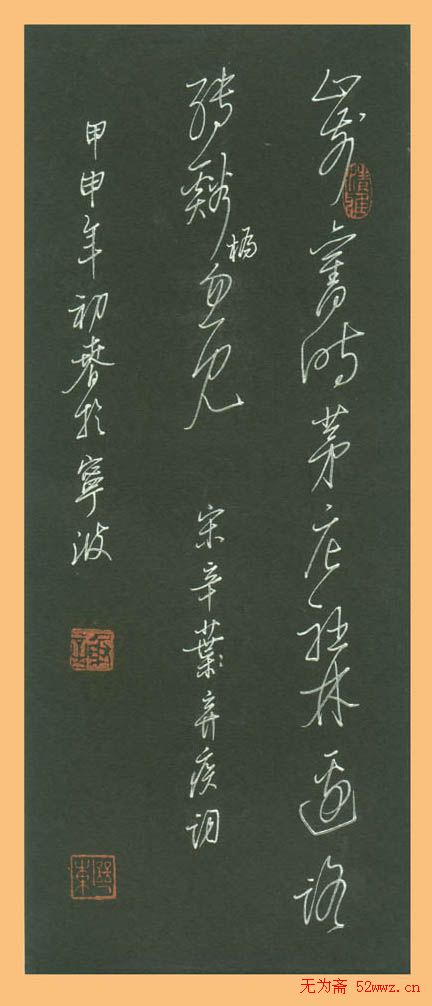 山前舊時茅店社林邊路
轉谿橋忽見
宋辛葉弃疾詞
甲申年初春於寧波
无为斋 52wwz.cn